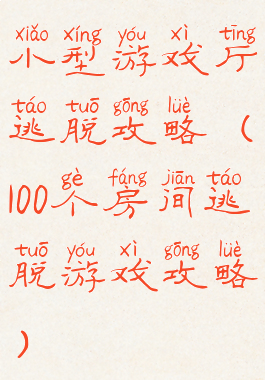 xiǎo xíng yóu xì tīng
小型游戏厅
táo tuō gōng lüè
逃脱攻略（
gè fáng jiān táo
100个房间逃
tuō yóu xì gōng lüè
脱游戏攻略
）